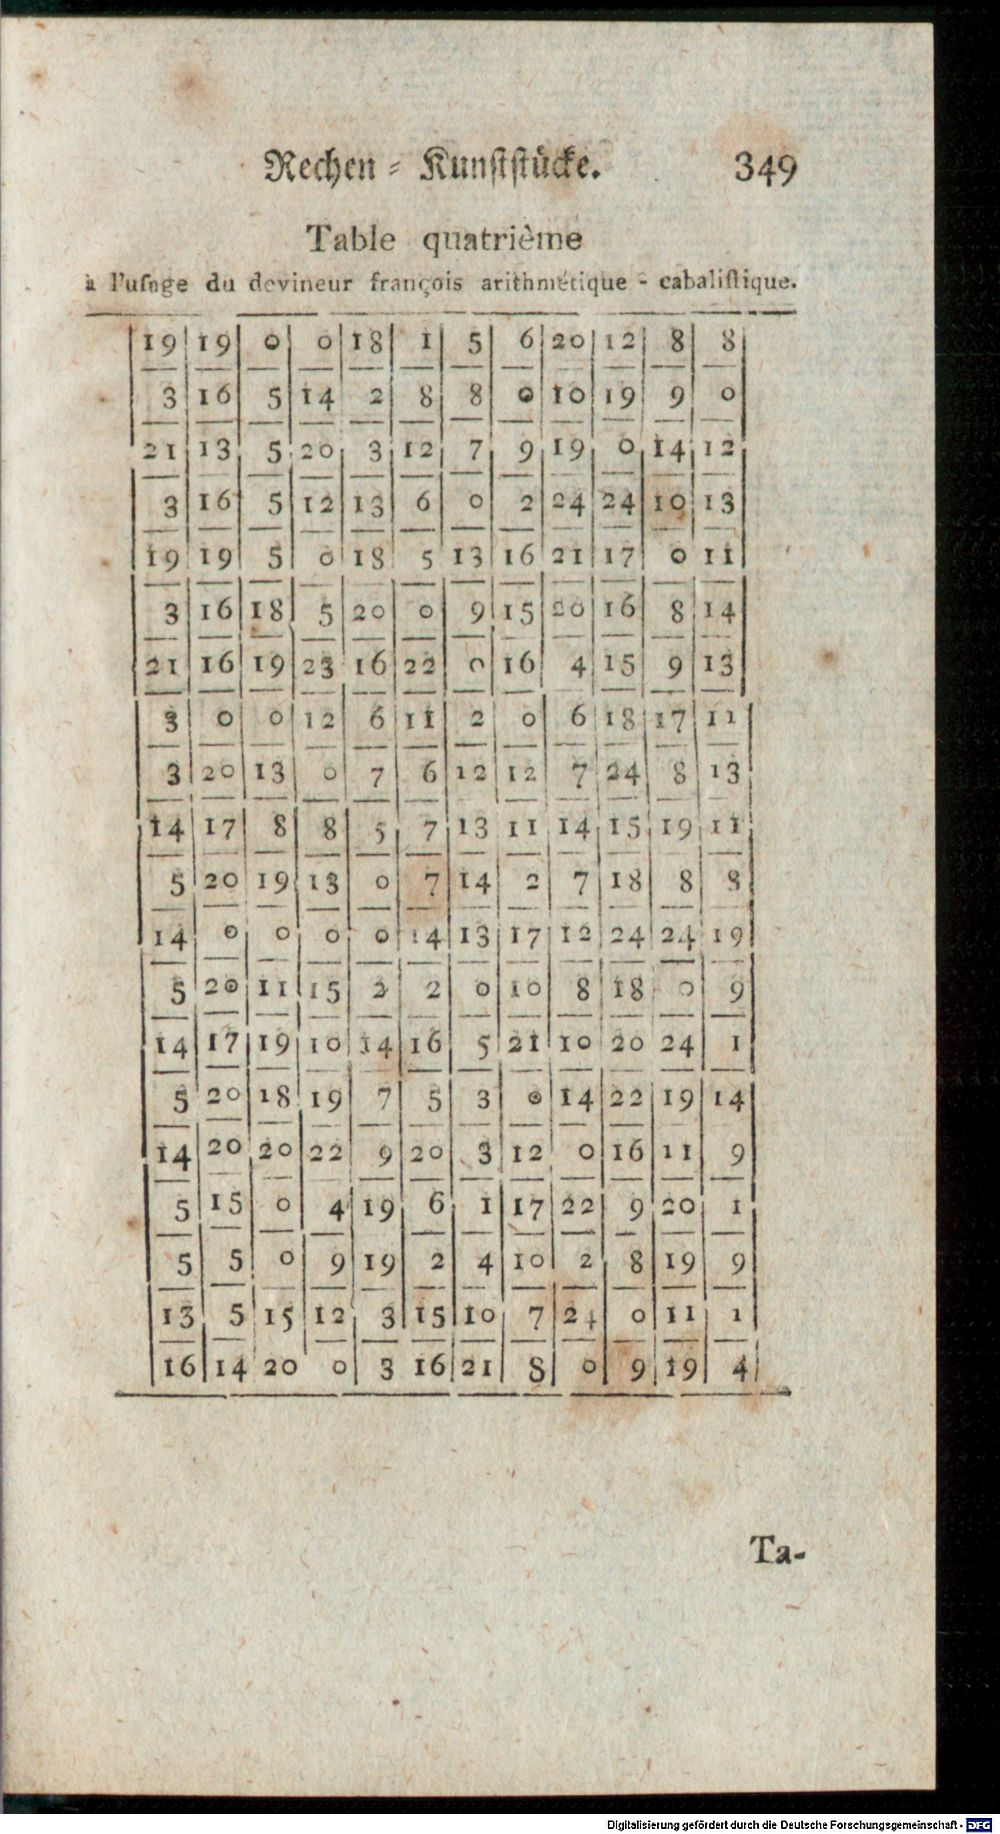 Rechen = Kunststücke. 349
Table quatrième
à l'uſage du devineur françois arithmétique - cabaliſtique.
19 19 0 0 18 1 5 6 20 12 8 8
3 16 5 14 2 8 8 0 10 19 9 0
21 13 5 20 3 12 7 9 19 0 14 12
3 16 5 12 13 6 0 2 24 24 10 13
19 19 5 0 18 5 13 16 21 17 0 11
3 16 18 5 20 0 9 15 20 16 8 14
21 16 19 23 16 22 0 16 4 15 9 13
3 0 0 12 6 11 2 0 6 18 17 11
3 20 13 0 7 6 12 12 7 24 8 13
14 17 8 8 5 7 13 11 14 15 19 11
5 20 19 13 0 7 14 2 7 18 8 8
14 0 0 0 0 14 13 17 12 24 24 19
5 20 11 15 2 2 0 10 8 18 0 9
14 17 19 10 14 16 5 21 10 20 24 1
5 20 18 19 7 5 3 0 14 22 19 14
14 20 20 22 9 20 3 12 0 16 11 9
5 15 0 4 19 6 1 17 22 9 20 1
5 5 0 9 19 2 4 10 2 8 19 9
13 5 15 12 3 15 10 7 24 0 11 1
16 14 20 0 3 16 21 8 0 9 19 4
Ta-
Digitalisierung gefördert durch die Deutsche Forschungsgemeinschaft - DFG